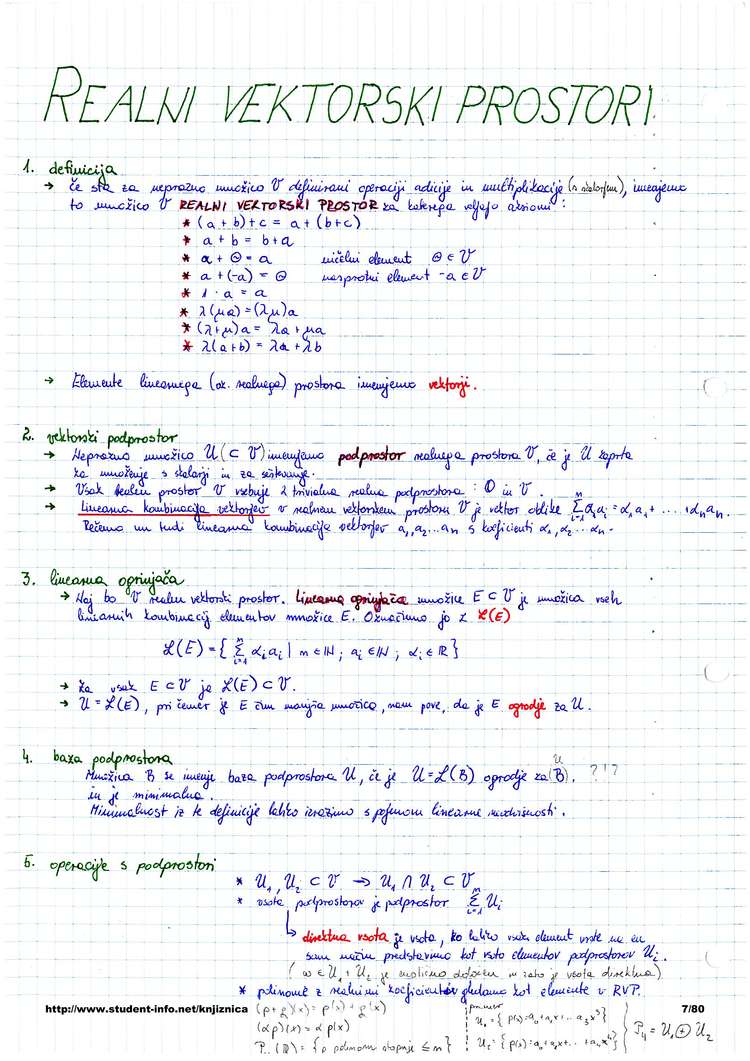 REALNI VEKTORSKI PROSTORI
1. definicija
→ če sta za neprazno množico V definirani operaciji adicije in multiplikacije (s skalarjem), imenujemo
to množico V REALNI VEKTORSKI PROSTOR za katerega veljajo aksiomi:
* (a + b) + c = a + (b+c)
* a + b = b + a
* a + Θ = a ničelni element Θ ∈ V
* a + (-a) = Θ nasprotni element -a ∈ V
* 1 · a = a
* λ(μa) = (λμ)a
* (λ+μ)a = λa + μa
* λ(a+b) = λa + λb
→ Elemente linearnega (oz. realnega) prostora imenujemo vektorji.
2. vektorski podprostor
→ Neprazno množico U (⊂ V) imenujemo podprostor realnega prostora V, če je U zaprta
za množenje s skalarji in za seštevanje.
→ Vsak realni prostor V vsebuje 2 trivialna realna podprostora: O in V.
→ Linearna kombinacija vektorjev v realnem vektorskem prostoru V je vektor oblike Σ αᵢaᵢ = α₁a₁ + .... + αₙaₙ.
Rečemo mu tudi linearna kombinacija vektorjev a₁, a₂...aₙ s koeficienti α₁, α₂...αₙ.
3. linearna ogrinjača
→ Naj bo V realen vektorski prostor. Linearna ogrinjača množice E ⊂ V je množica vseh
linearnih kombinacij elementov množice E. Označimo jo z L(E)
L(E) = { Σ αᵢaᵢ | n ∈ ℕ ; aᵢ ∈ ℕ ; αᵢ ∈ ℝ }
→ Za vsak E ⊂ V je L(E) ⊂ V.
→ U = L(E), pri čemer je E čim manjša množica, nam pove, da je E ogrodje za U.
4. baza podprostora
Množica B se imenuje baza podprostora U, če je U = L(B) ogrodje za (B). U ?!?
in je minimalna.
Minimalnost iz te definicije lahko izrazimo s pojmom linearne neodvisnosti.
5. operacije s podprostori
* U₁, U₂ ⊂ V → U₁ ∩ U₂ ⊂ V
* vsota podprostorov je podprostor Σ Uᵢ
↳ direktna vsota je vsota, ko lahko vsak element vsote na en
sam način predstavimo kot vsoto elementov podprostorov Uᵢ.
(w ∈ U₁ + U₂ je enolično določen in zato je vsota direktna)
* polinome z realnimi koeficienti gledamo kot elemente v RVP.
http://www.student-info.net/knjiznica (p+q)(x) = p(x) + q(x) primer 7/80
(αp)(x) = α p(x) U₁ = { p(x): a₀+a₁x+... a₃x³ } P₄ = U₁ ⊕ U₂
Pₙ(ℝ) = { p polinom stopnje ≤ n } U₂ = { p(x): a₀+a₁x+... +a₄x⁴ }